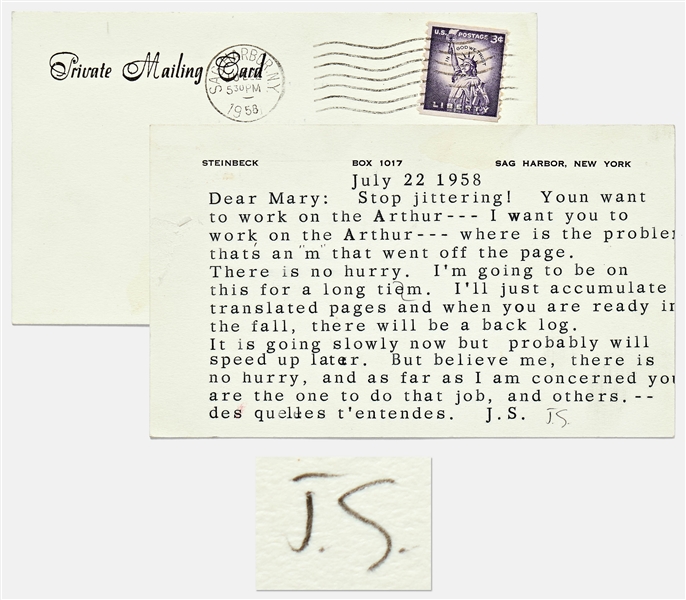 Private Mailing Card
SAG HARBOR, N.Y.
530 PM
1958
U.S. POSTAGE 3¢
IN GOD WE TRUST
LIBERTY
STEINBECK BOX 1017 SAG HARBOR, NEW YORK
July 22 1958
Dear Mary: Stop jittering! Youn want
to work on the Arthur--- I want you to
work on the Arthur--- where is the proble
that's an "m" that went off the page.
There is no hurry. I'm going to be on
this for a long tiem. I'll just accumulate
translated pages and when you are ready in
the fall, there will be a back log.
It is going slowly now but probably will
speed up later. But believe me, there is
no hurry, and as far as I am concerned you
are the one to do that job, and others.--
des quelles t'entendes. J.S. J.S.
J.S.